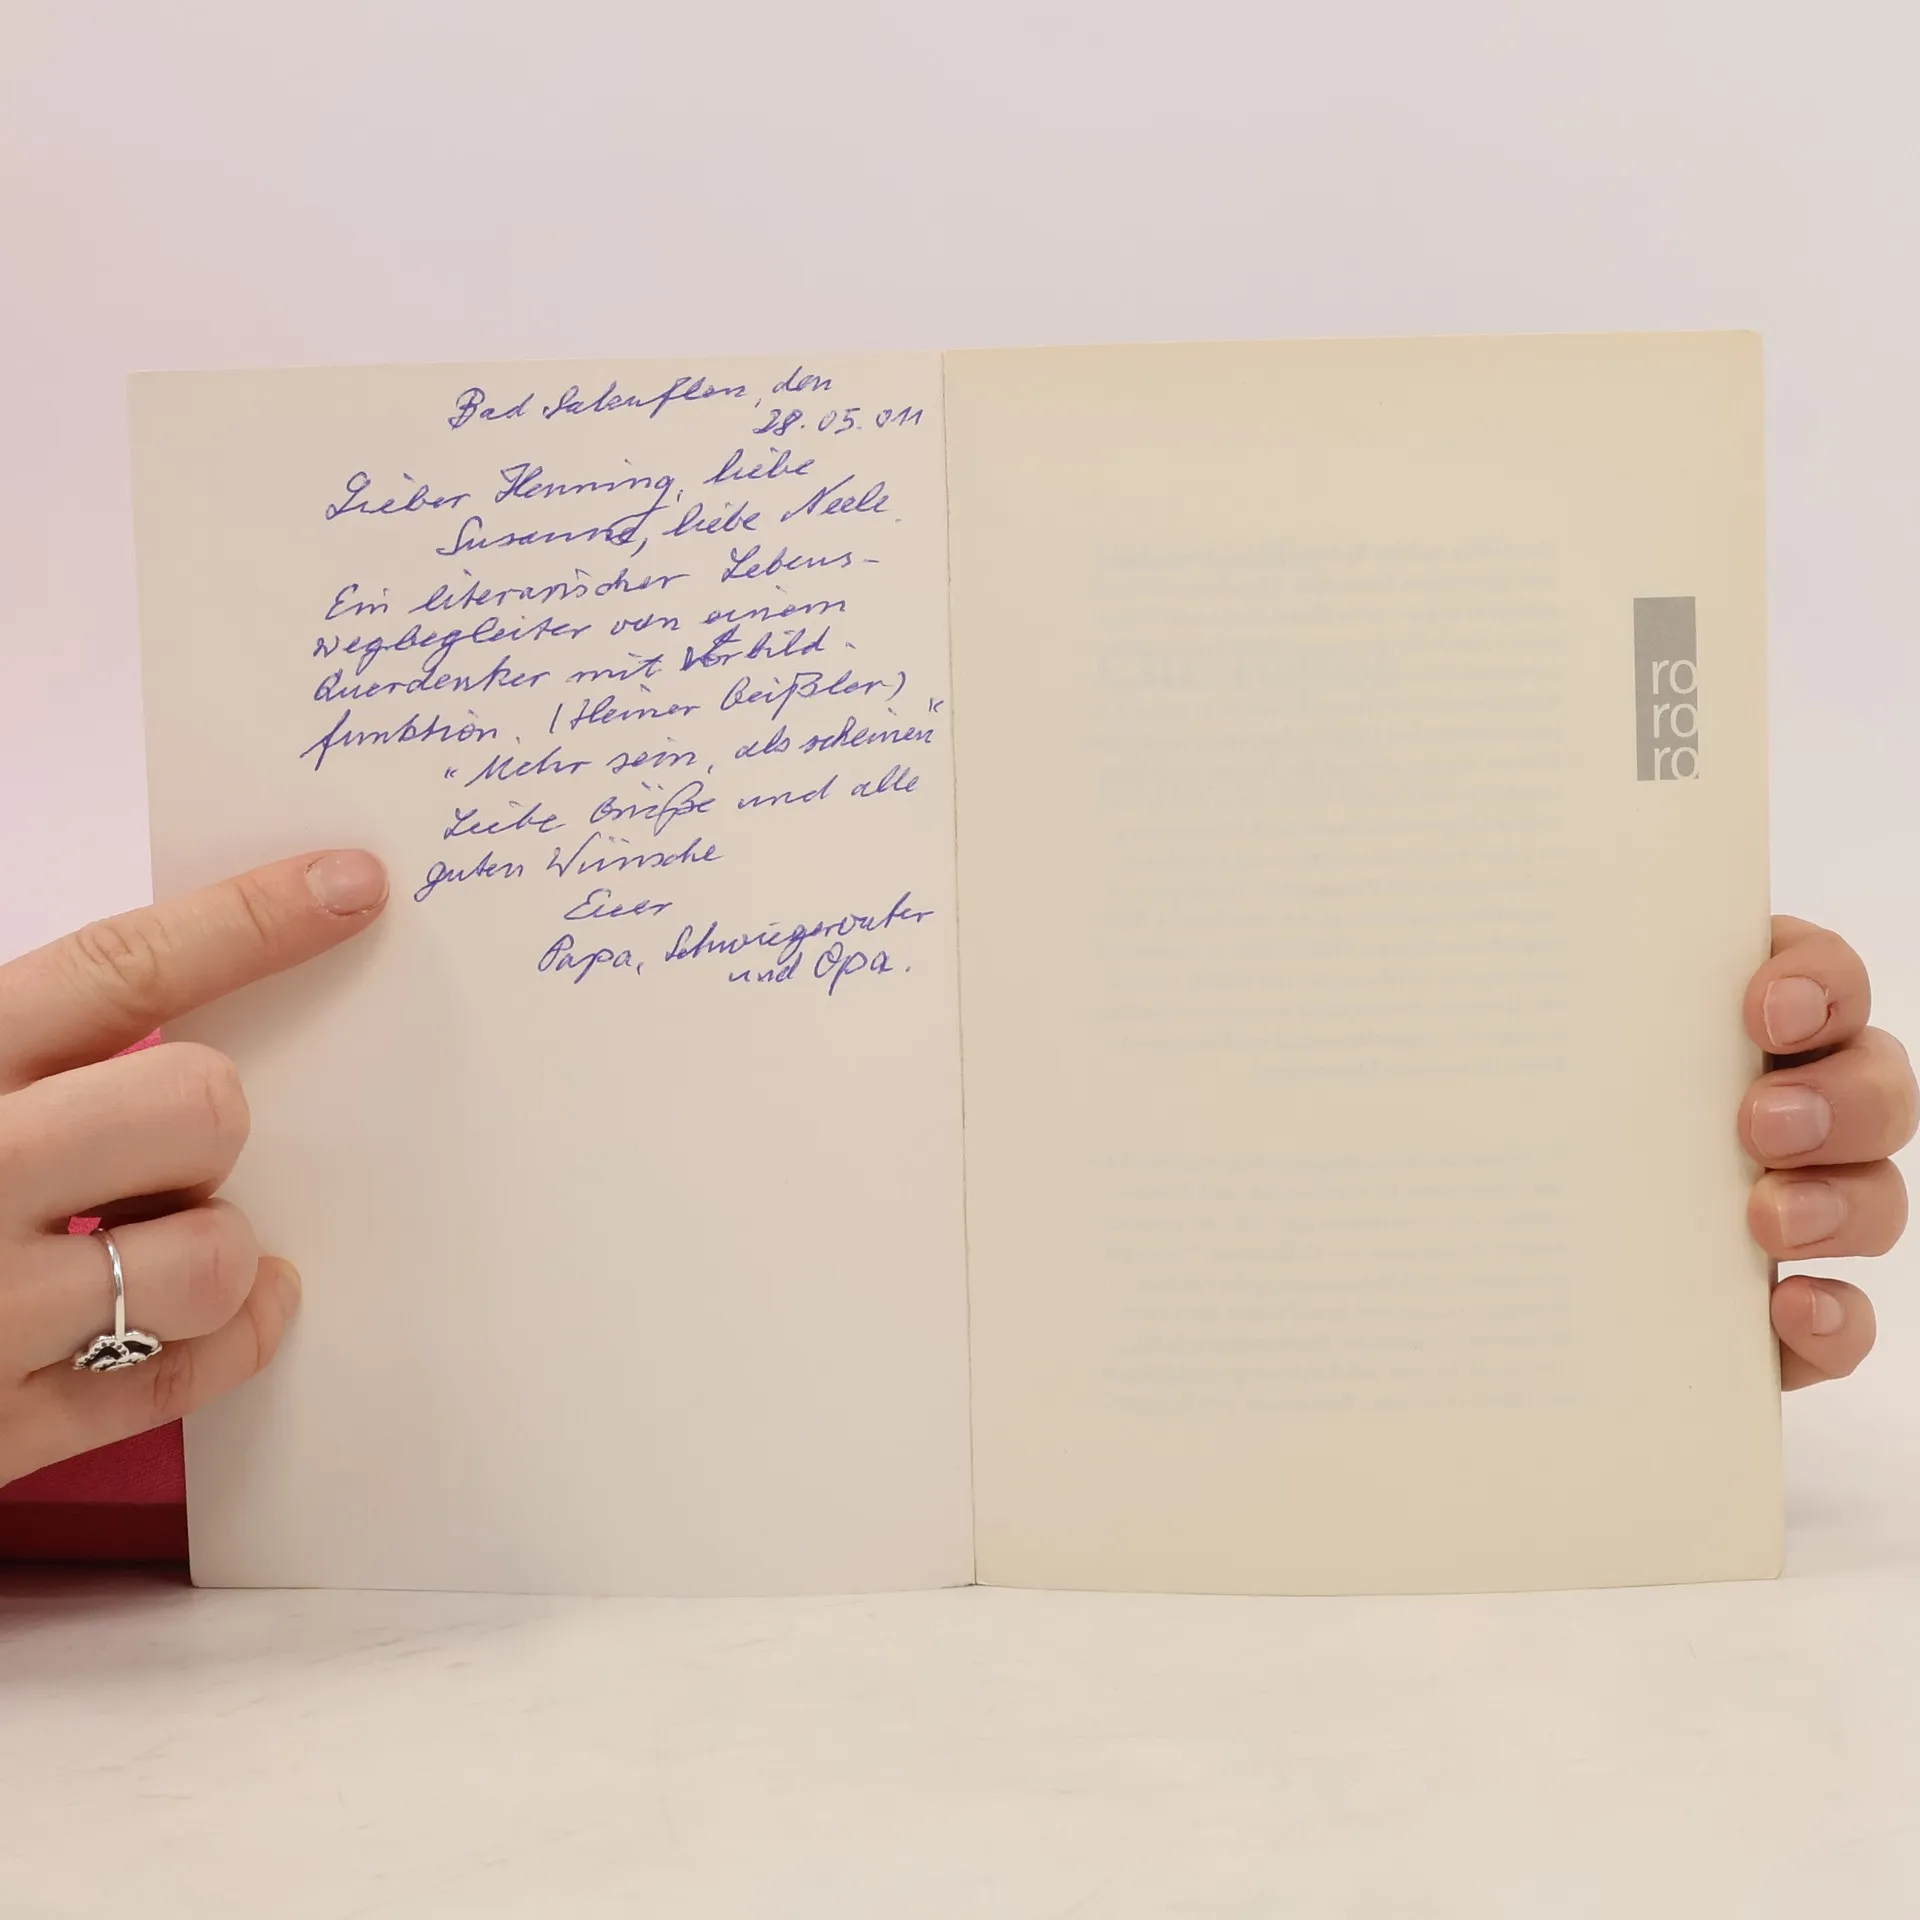 Bad Salzuflen, den
28.05.011
Lieber Henning, liebe
Susanne, liebe Neele.
Ein literarischer Lebens-
wegbegleiter von einem
Querdenker mit Vorbild-
funktion. (Heiner Geißler)
"Mehr sein, als scheinen"
Liebe Grüße und alle
guten Wünsche
Euer
Papa, Schwiegervater
und Opa.
ro
ro
ro